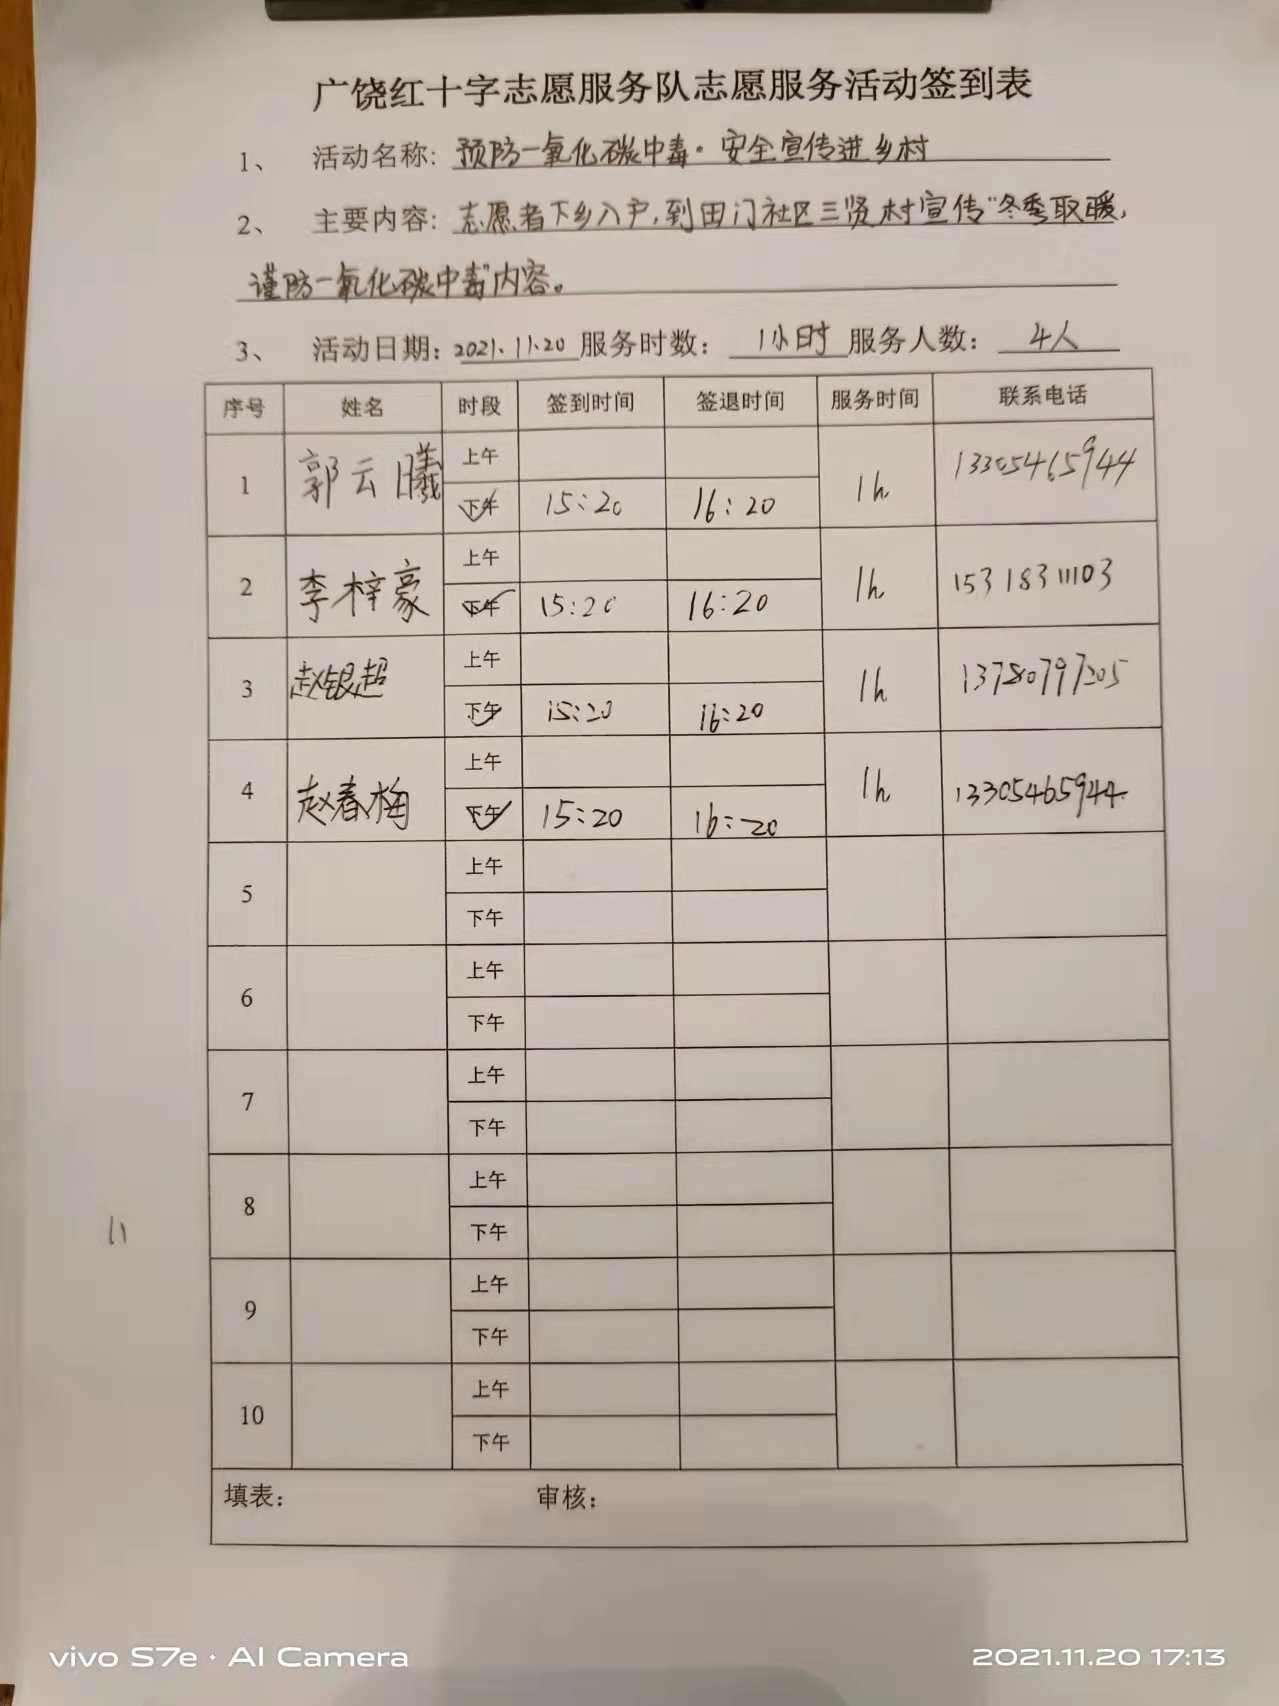 广饶红十字志愿服务队志愿服务活动签到表
1、 活动名称: 预防一氧化碳中毒·安全宣传进乡村
2、 主要内容: 志愿者下乡入户,到田门社区三贤村宣传"冬季取暖,
谨防一氧化碳中毒"内容。
3、 活动日期: 2021.11.20 服务时数: 1小时 服务人数: 4人
序号 姓名 时段 签到时间 签退时间 服务时间 联系电话
1 郭云曦 上午 1h 13305465944
下午 15:20 16:20
2 李梓豪 上午 1h 15318311103
下午 15:20 16:20
3 赵银超 上午 1h 13780797205
下午 15:20 16:20
4 赵春梅 上午 1h 13305465944
下午 15:20 16:20
5 上午
下午
6 上午
下午
7 上午
下午
8 上午
下午
9 上午
下午
10 上午
下午
填表: 审核:
vivo S7e · AI Camera
2021.11.20 17:13